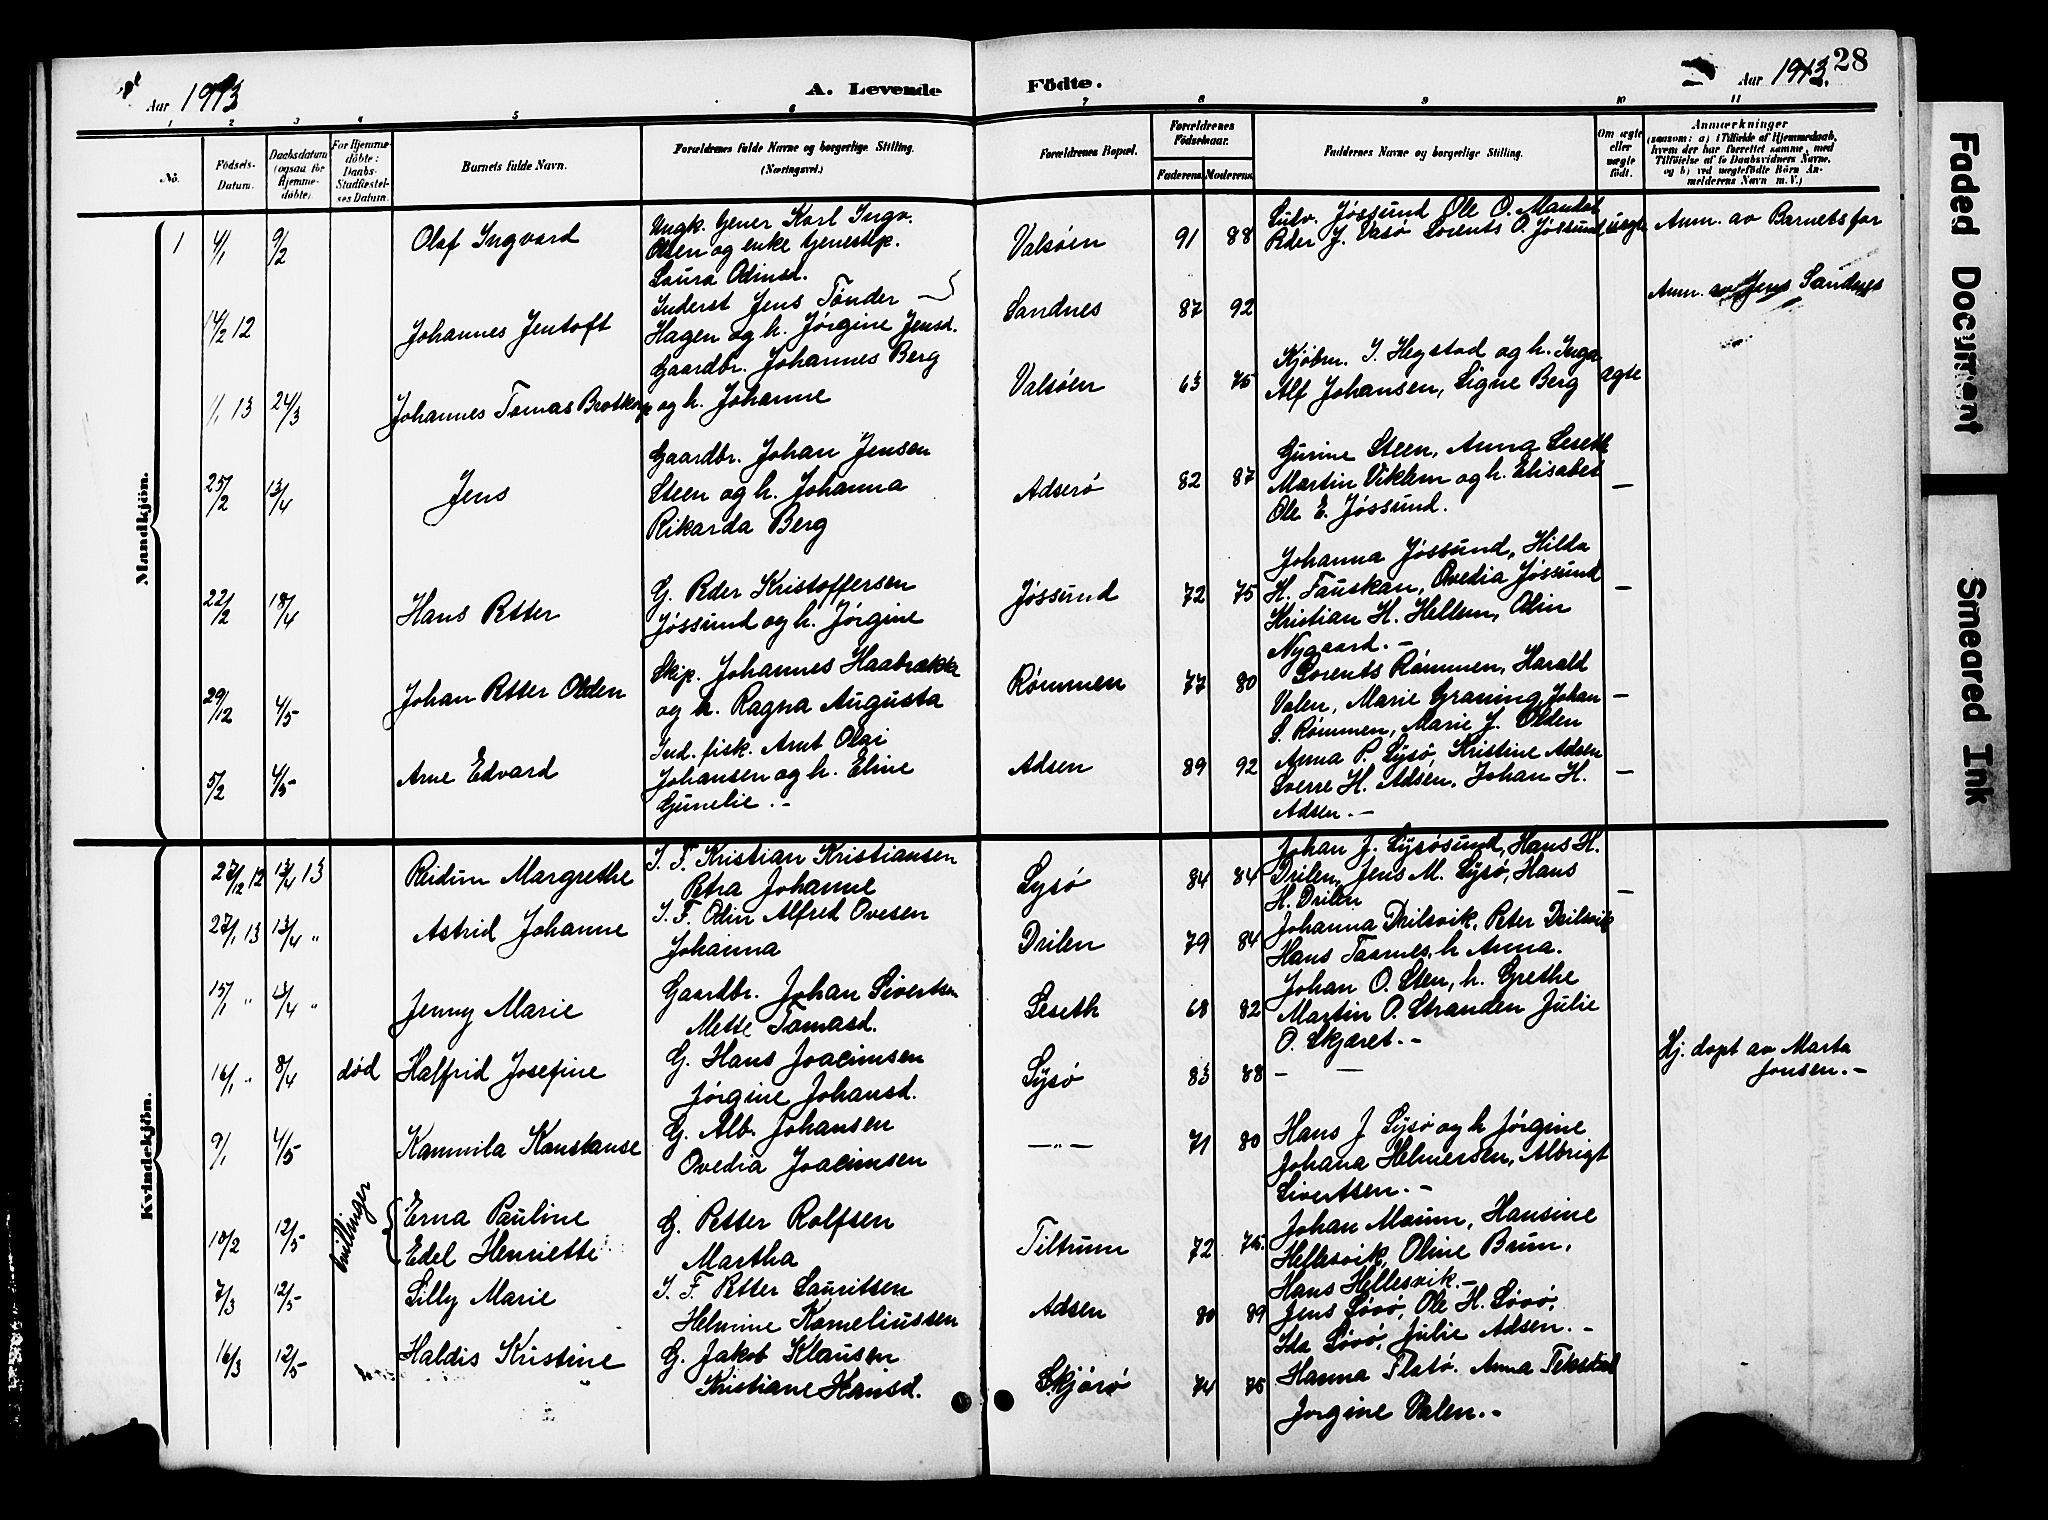 Aar 1913
A. Levende
Födte.
Aar 1913.
28
1 2 3 4 5 6 7 8 9 10 11
No.
Födsels-Datum.
Daabsdatum (ogsaa for Hjemmedöbte).
For Hjemmedöbte: Daabs-Stadfæstelses Datum.
Barnets fulde Navn.
Forældrenes fulde Navne og borgerlige Stilling.
(Næringsvei.)
Forældrenes Bopæl.
Forældrenes Födselsaar.
Faderens. Moderens.
Faddernes Navne og borgerlige Stilling.
Om ægte eller uægte födt.
Anmærkninger
(saasom: a) i Tilfælde af Hjemmedaab,
hvem der har forrettet samme, med
Tilföielse af to Daabsvidners Navne,
og b) ved uægtefödte Börn Anmelderens Navn m.V.)
Mandkjön.
1 4/1 9/2 Olaf Ingvard
Ungk. tjener Karl Ingv.
Olsen og enke tjenestep.
Laura Odinsd.
Valsøen 91 88
Selv. Jøssund Ole O. Mandal
Peder J. Vasø Lorents O. Jøssund
uegte
Anm. av Barnets far
14/2 12 Johannes Jentoft
Inderst Jens Tønder
Hagen og h. Jørgine Jensd.
Sandnes 87 92
Anm. av Jens Sandnes
1/1 13 24/3 Johannes Tomas Brotkorp
Gaardbr. Johannes Berg
og h. Johanne
Valsøen 63 75
Kjøbm. I. Hegstad og h. Inga
Alf Johansen, Signe Berg
egte
25/2 13/4 Jens
Gaardbr. Johan Jensen
Steen og h. Johanna
Rikarda Berg
Adserø 82 87
Gurine Steen, Anna Leseth
Martin Viklem og h. Elisabet
Ole E. Jøssund.
—
22/2 18/4 Hans Petter
G. Peder Kristoffersen
Jøssund og h. Jørgine
Jøssund 72 75
Johanna Jøssund, Hilda
H. Fauskan, Ovedia Jøssund
Kristian H. Hellem, Odin
Nygaard. —
—
29/12 4/5 Johan Petter Olden
Skip. Johannes Haabrække
og h. Ragna Augusta
Rømmen 77 80
Lorents Rømmen, Harald
Valen, Marie Graning, Johan
S. Rømmen, Marie J. Olden
—
5/2 4/5 Arne Edvard
Ind. fisk. Arnt Olai
Johansen og h. Eline
Gunelie. —
Adsen 89 92
Anna P. Lysø, Kristine Adsen
Sverre H. Adsen, Johan H.
Adsen. —
—
Kvindekjön.
27/12 12 13/4 13 Reidun Margrethe
I. F. Kristian Kristiansen
Petra Johanne
Lysø 84 84
Johan J. Lysøsund, Hans H.
Drilen, Jens M. Lysø, Hans
H. Drilen
—
27/1 13 13/4 " Astrid Johanne
I. F. Odin Alfred Ovesen
Johanna
Drilen 79 84
Johanna Drilsvik, Peter Drilsvik
Hans Taarnes, h. Anna.
15/1 " 13/4 " Jenny Marie
Gaardbr. Johan Sivertsen
Mette Tomasd.
Leseth 68 82
Johan O. Sten, h. Grethe
Martin O. Stranden Julie
O. Skjæret. —
16/1 " 8/4 død Halfrid Josefine
G. Hans Joacimsen
Jørgine Johansd.
Lysø 83 88
— —
Hj. døpt av Marta
Jonsen. —
9/1 4/5 Kammila Konstanse
G. Alb. Johansen
Ovedia Joacimsen
— " — 71 80
Hans J Lysø og h Jørgine
Johana Helmersen, Albrigt
Sivertsen. —
10/2 12/5 tvillinger
Erna Pauline
Edel Henriette
G. Petter Rolfsen
Martha
Tiltrum 72 75.
Johan Maum, Hansine
Hellesvik, Oline Brun,
Hans Hellesvik. —
7/3 12/5 Lilly Marie
I. F. Petter Lauritsen
Helmine Korneliussen
Adsen 80 89
Jens Løvø, Ole H. Løvø,
Ida Løvø, Julie Adsen. —
16/3 12/5 Haldis Kristine
G. Jakob Klausen
Kristiane Hansd.
Skjørø 74 75
Hanna Flatø. Anna Tekstad
Jørgine Valen. —
Faded Document
Smeared Ink